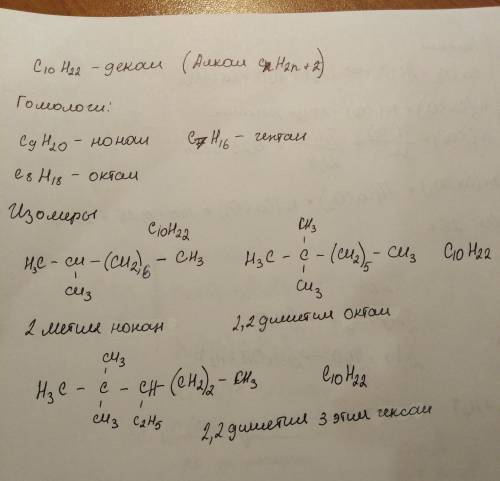 C10H22 – декан (Алкан CnH2n+2)
Гомологи:
C9H20 – нонан C7H16 – гептан
C8H18 – октан
Изомеры
C10H22
H3C – CH – (CH2)6 – CH3
CH3
2 метил нонан
CH3
H3C – C – (CH2)5 – CH3 C10H22
CH3
2,2 диметил октан
CH3
H3C – C – CH – (CH2)2 – CH3 C10H22
CH3 C2H5
2,2 диметил 3 этил гексан